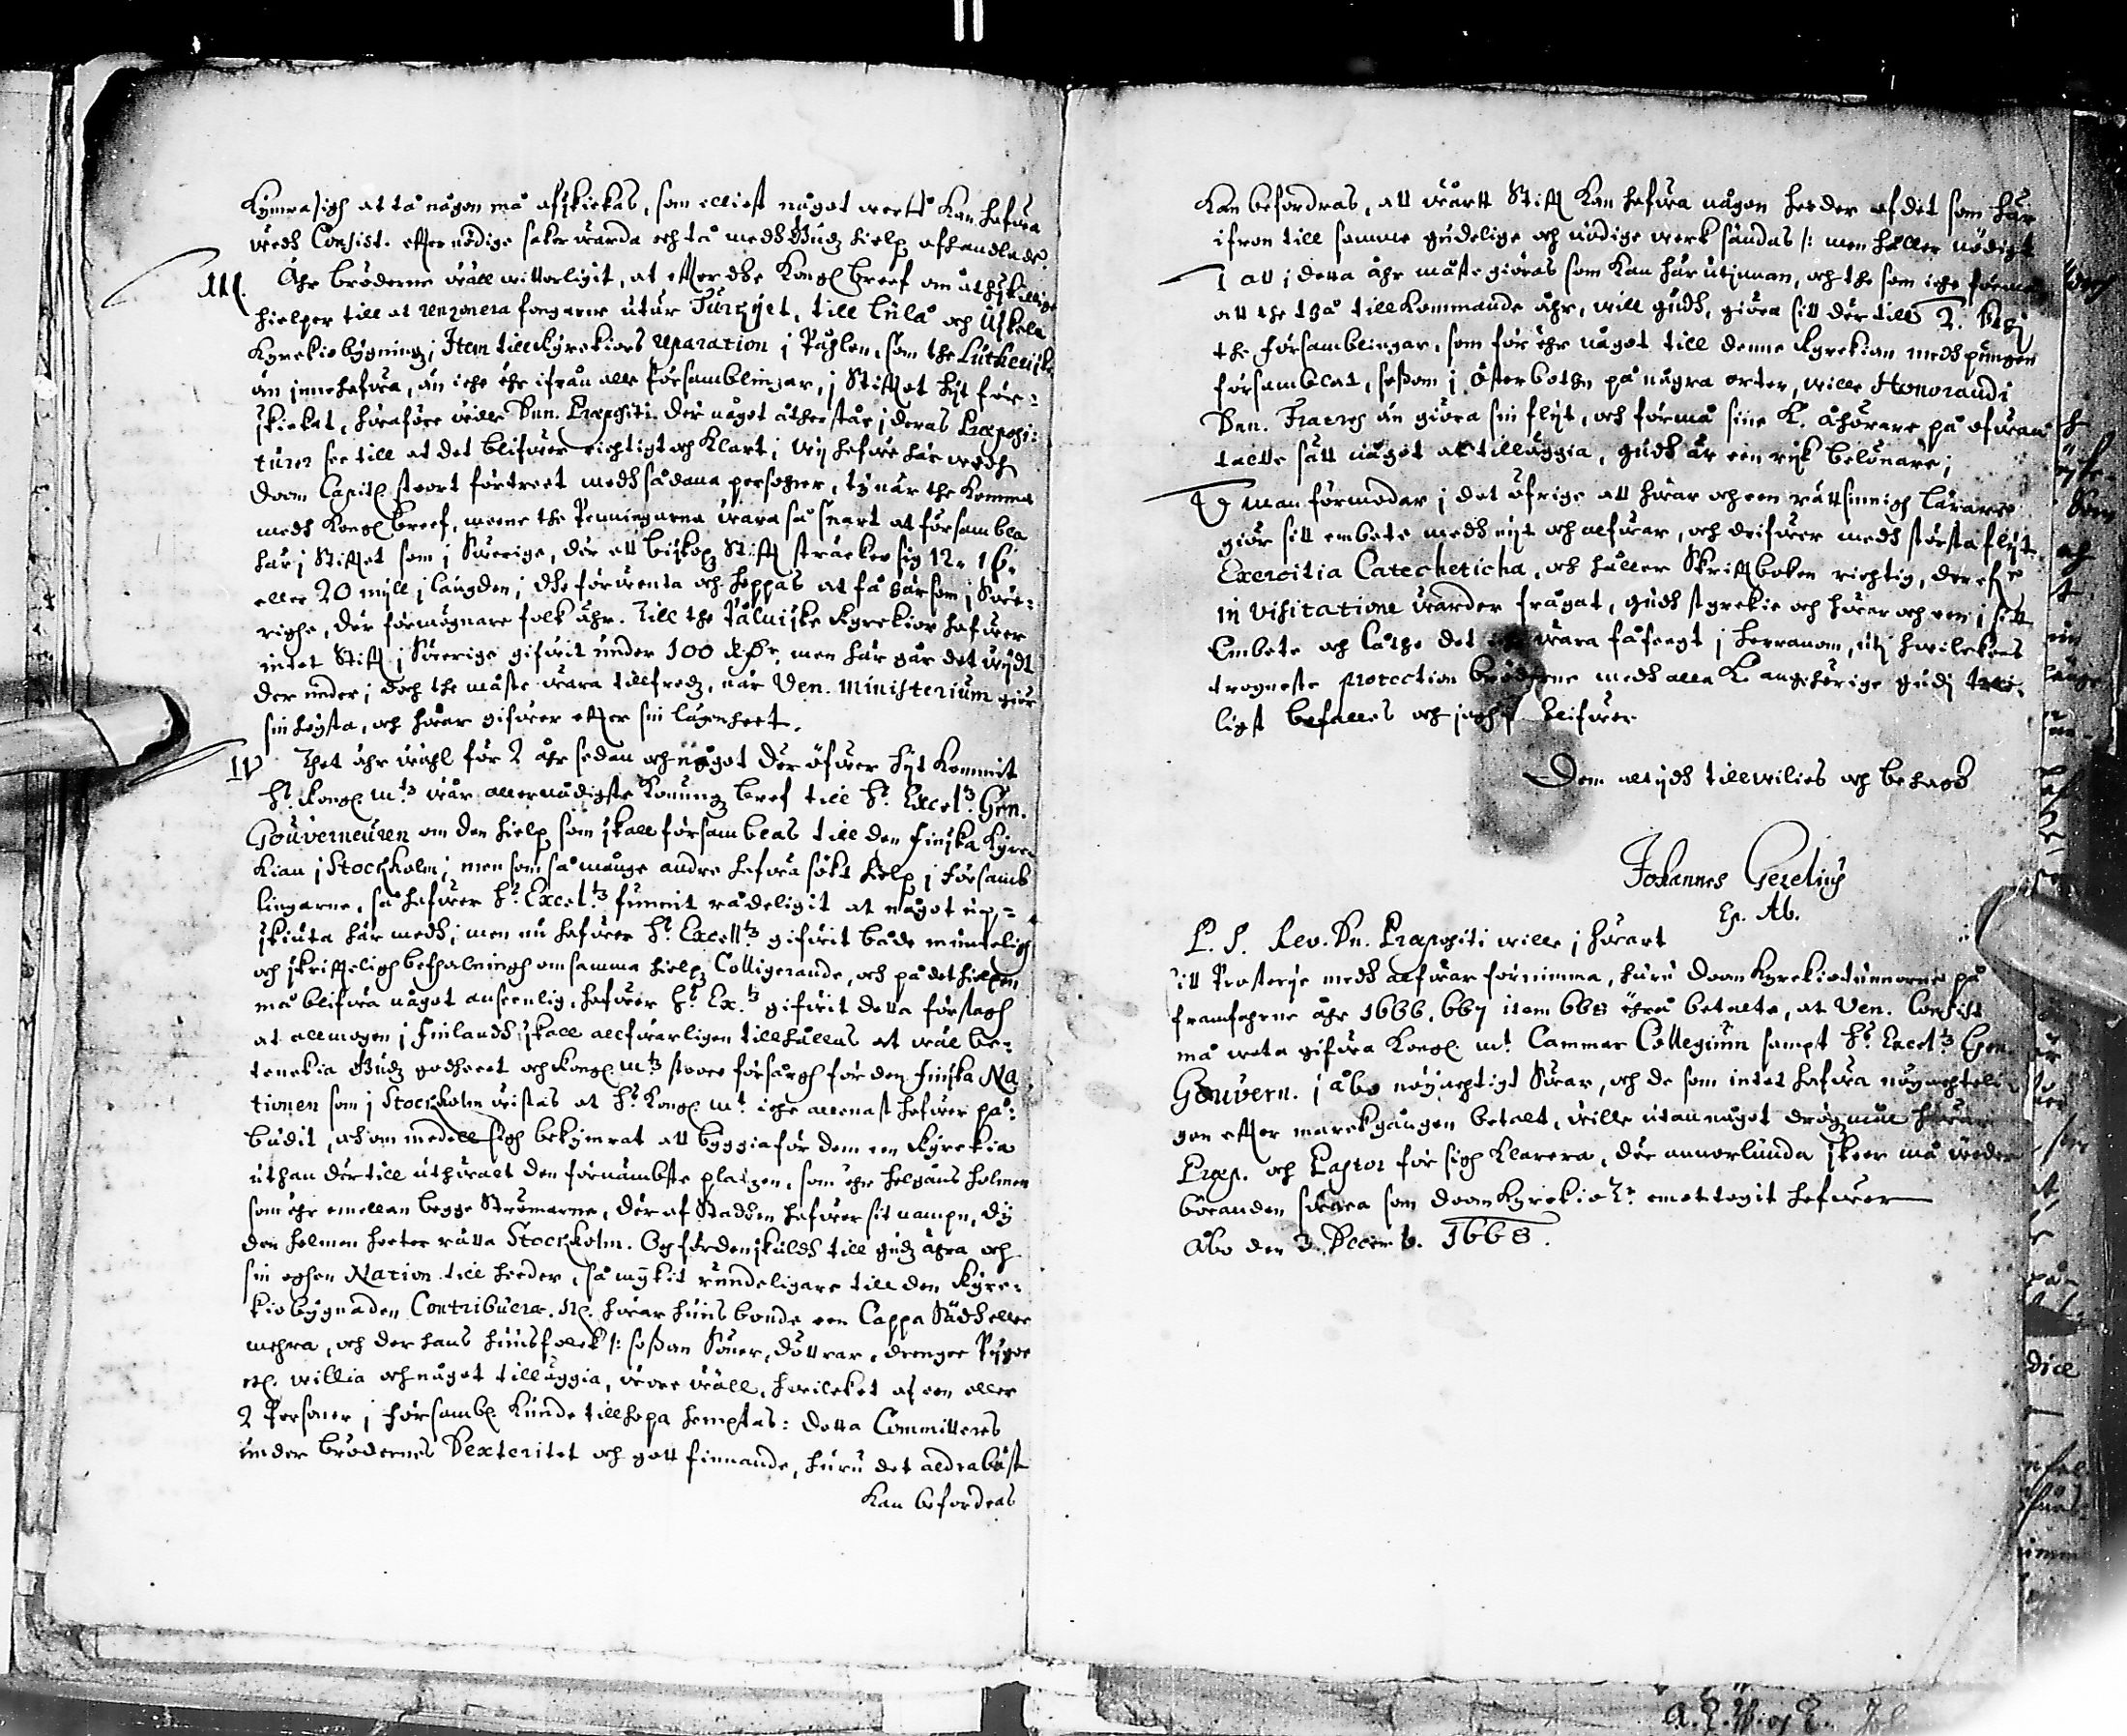 Kymra sigh at tå någon må afskickas, som elliest något werttå kan hafwa
widh Consist. effter nödige saker wärda och tå medh Gudz hielp afhandlade.
III. Ähr bröderne wäll witterligit, at effter dhe Kongl breef om åthskillige
hielper till at renzonera fongarer uthur Turckiet, till Lula och Uskela
Kyrckiobygning; Item till Kyrckiors reparation i Påhlen, som the Lutherske
än innehafwa, än icke ähr ifrån alla församblingar, i Stifftet hijt för-
skickat, hwarföre wille Dnn. Præpositi der något återstår i deras Præposi-
turer see till at det blifwer richtigt och klart; Wij hafwe här widh
Doom Capitl stoort förtreet medh sådana personer, ty när the komma
medh Kongl breef, meena the Penningarna wara så snart at försambla
här i Stifftet som i Swerige, der ett biskops Stifft sträcker sig 12. 16.
eller 20 mijl i längden; dhe förwenta och hoppas at få här som i Swe-
righe, der förmögnare folk ähr. Till the Pålniske Kyrckior hafwer
intet Stifft i Swerige gifwit under 100 Rdr, men här går det wijdt
der under; doch the måste wara tillfredz, när Ven. Ministerium giör
sin högsta, och hwar gifwer effter sin lägenheet.
IV Thet ähr wähl för 2 åhr sedan och något der öfwer hijt kommit
Hs Kongl Mtz wår allernådigste Konungz bref till Hs Excelltz Gen.
Gouverneuren om den hielp som skall församblas till den finska Kyrc-
kian i Stockholm; men som så månge andre hafwa sökt hielp i församb
lingarne, så hafwer Hs Exceltz funnit rådeligit at något up-
skiuta här medh; men nu hafwer Hs Excelltz gifwit både munteligh
och skriffteligh befhalningh om samma hielp Colligerande, och på det hielpen
må blifwa något anseenlig, hafwer Hs Ex.tz gifwit detta förslagh
at allmogen i Finlandh skall allfwarligen tillhållas at wäl be-
tenckia Gudz godheet och Kongl Mtz stoore försårgh för den Finska Na
tionen som i Stockholm wistas at Hs Kongl Mt icke allenast hafwer på-
budit, och om medell sigh bekymrat att byggia för dem een Kyrckia
uthan der till uthwalt den förnämbste platzen, som ähr helgans holmen
som ähr emellan begge Strömarne, der af Staden hafwer sit nampn, dy
den holmen heeter rätta Stockholm. Och fördenskuldh till Gudz ähra och
sin eghen Nation till heeder, så myckit rundeligare till den Kyrc-
kio bygnaden Contribuera. Nl. hwar huusbonde een Cappa Sädh eller
mehra, och der hans huusfolck /: såsom Söner, döttrar, drenger Pigor
etc. willia och något tilläggia, wore wäll, hwilcket af een eller
2 Personer i försambl. kunde tillhopa hemptas: Detta Committeres
under brödernes Dexteritet och gott finnande, huru det aldrabäst
kan befordras
Kan befordras, att wårtt Stifft kan hafwa någon heeder af det som här
ifron till samme gudelige och nödige werk sändas /: men håller nödigt
att i detta åhr måste giöras som kan här utinnan, och the som icke förmå
att the thå tillkommande åhr, will gudh, giöra sitt der till
the församblingar, som för ähr något till denne Kyrckian medh pungen
församblat, såsom i Österbothn på några orter, wille Honorandi
Dnn. Fratres än giöra sin flijt, och förmå sine K. åhörare på ofwan
talte sätt något at tilläggia, Gudh är een rijk belönare;
V man förmodar i det öfrige att hwar och een rättsinnigh lärare
giör sitt embete medh nijt och alfwar, och drifwer medh största flijt
Exercitia Catechetica, och håller Skrifftboken richtig, der effter
in Visitatione warder frågat, Gudh styrckie och hwar och een i sitt
Embete och låthe det wara fåfengt i herranom, uti hwilckens
trogneste protection bröderne medh alla K. angehörige gudi tro-
ligst befalles och jagh blifwer
Dem altijdh tillwilies och behags
Johannes Gezelius
Ep. Ab.
P. S. Rev. Dn. Præpositi wille i hwart
sitt Prosterije medh alfwar förnimma, huru Doom Kyrckiotunnorne på
framfarne åhr 1666, 667 item 668 ähra betalte, at Ven. Consist
må weta gifwa Kongl. Mt Cammar Collegium sampt Hs Exceltz Gen.
Gouvern. i Åbo nöyachtigt Swar, och de som intet hafwa nöyachteli
gen effter marckgången betalt, wille utan något drögzmål hwar
Præp. och Pastor för sigh klarera, der annorlunda skeer må wederbörande
swara som DoomKyrckio Tr emottagit hafwer
Åbo den 3. Decemb. 1668.